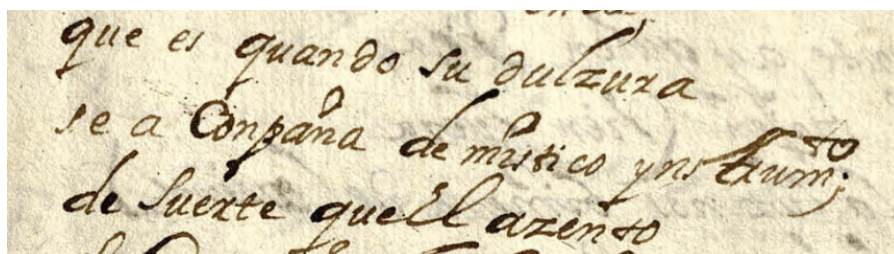 que es quando su dulzura
se a Conpaña de mistico ynstrum.to;
de Suerte que El azento